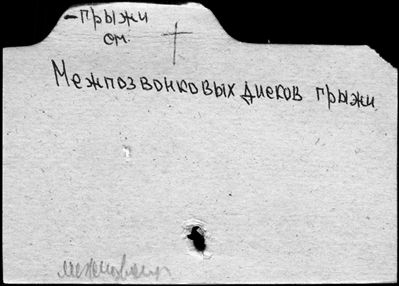 - грыжи
см.
Межпозвонковых дисков грыжи